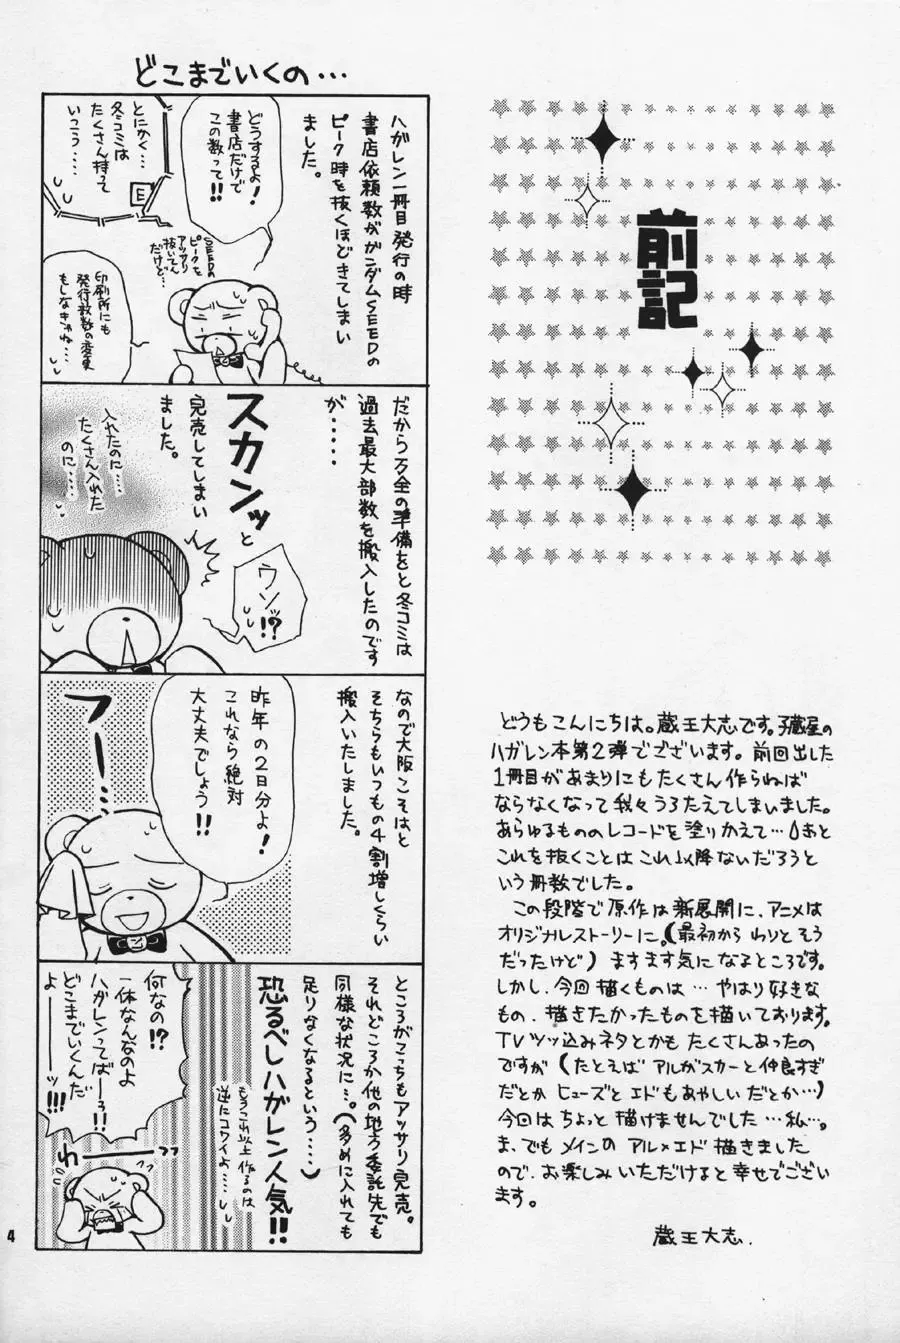 前記
どうもこんにちは。蔵王大志です。子蔵屋の
ハガレン本第2弾でございます。前回出した
1冊目があまりにもたくさん作らねば
ならなくなって我々うろたえてしまいました。
あらゆるもののレコードを塗りかえて…あと
これを抜くことはこれ以降ないだろうと
いう冊数でした。
この段階で原作は新展開に、アニメは
オリジナルストーリーに。(最初からわりとそう
だったけど)ますます気になるところです。
しかし、今回描くものは…やはり好きな
もの、描きたかったものを描いております。
TVツッ込みネタとかもたくさんあったの
ですが(たとえばアルがスカーと仲良すぎ
だとかヒューズとエドもあやしいだとか…)
今回はちょっと描けませんでした…私…。
ま、でもメインのアル×エド描きました
ので、お楽しみいただけると幸せでござい
ます。
蔵王大志.
どこまでいくの…
ハガレン一冊目発行の時
書店依頼数がガンダムSEEDの
ピーク時を抜くほどきてしまい
ました。
どうするよ!
書店だけで
この数って!!
とにかく…
冬コミは
たくさん持って
いこう…
E
SEEDの
ピークを
アッサリ
抜いてん
だけど…
印刷所にも
発行部数の変更
もしなきゃね…
だから万全の準備をと冬コミは
過去最大部数を搬入したのです
が・・・・・
スカンッと
完売してしまい
ました。
入れたのに…
たくさん入れた
のに…
ウソッ!?
なので大阪こそはと
そちらもいつもの4割増しくらい
搬入いたしました。
昨年の2日分よ!
これなら絶対
大丈夫でしょう!!
フー…
ところがこっちもアッサリ完売。
それどころか他の地方委託先でも
同様な状況に…。(多めに入れても
足りなくなるという…)
恐るべしハガレン人気!!
もうこれ以上作るのは
逆にコワイよ…
何なの!?
一体なんなのよ
ハガレンってばーっ!!
どこまでいくんだ
よーーッ!!!
わーーーっっ
4